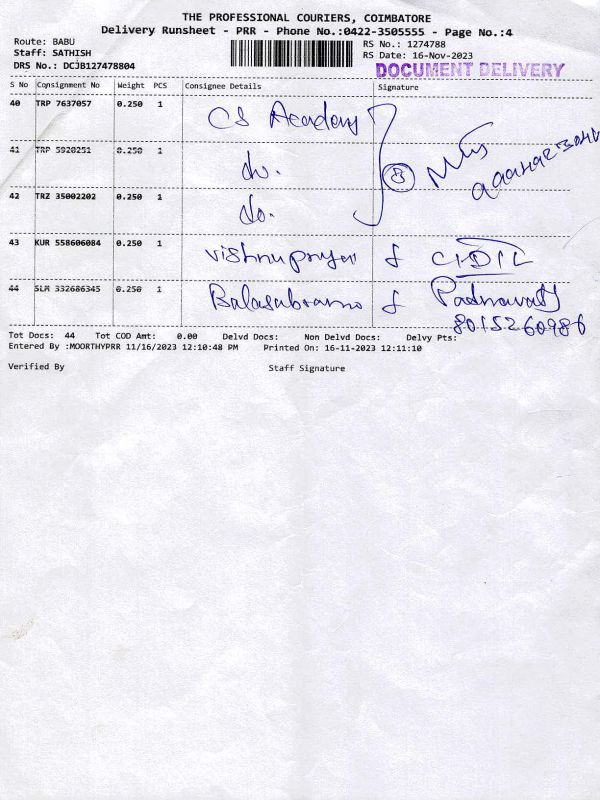 THE PROFESSIONAL COURIERS, COIMBATORE
Delivery Runsheet - PRR - Phone No.:0422-3505555 - Page No.:4
Route: BABU
Staff: SATHISH
DRS No.: DCJB127478804
RS No.: 1274788
RS Date: 16-Nov-2023
DOCUMENT DELIVERY
S No Consignment No Weight PCS Consignee Details Signature
40 TRP 7637057 0.250 1 CS Academy
41 TRP 5920251 0.250 1 do.
42 TRZ 35002202 0.250 1 do.
3
43 KUR 558606084 0.250 1 vishnupriya
44 SLM 332686345 0.250 1 Balasubramo
8015260986
Tot Docs: 44 Tot COD Amt: 0.00 Delvd Docs: Non Delvd Docs: Delvy Pts:
Entered By :MOORTHYPRR 11/16/2023 12:10:48 PM Printed On: 16-11-2023 12:11:10
Verified By Staff Signature